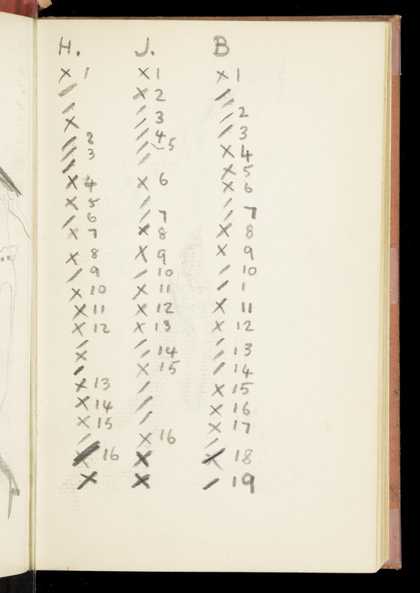 H. J. B
× 1 × 1 × 1
/ × 2 /
/ / 3 / 2
× / 4 / 3
/ 2 / 5 × 4
/ 3 / × 5
/ × 6
× 4 × 6 /
× 5 / / 7
/ 6 / 7 × 8
× 7 × 8 × 9
× 8 × 9 / 10
/ 9 / 10 / 1
× 10 × 11 × 11
× 11 × 12 × 12
× 12 × 13 / 13
/ / 14 / 14
× × 15 × 15
/ / × 16
× 13 / × 17
× 14 / /
× 15 × 16 × 18
/ × / 19
× 16 ×
×